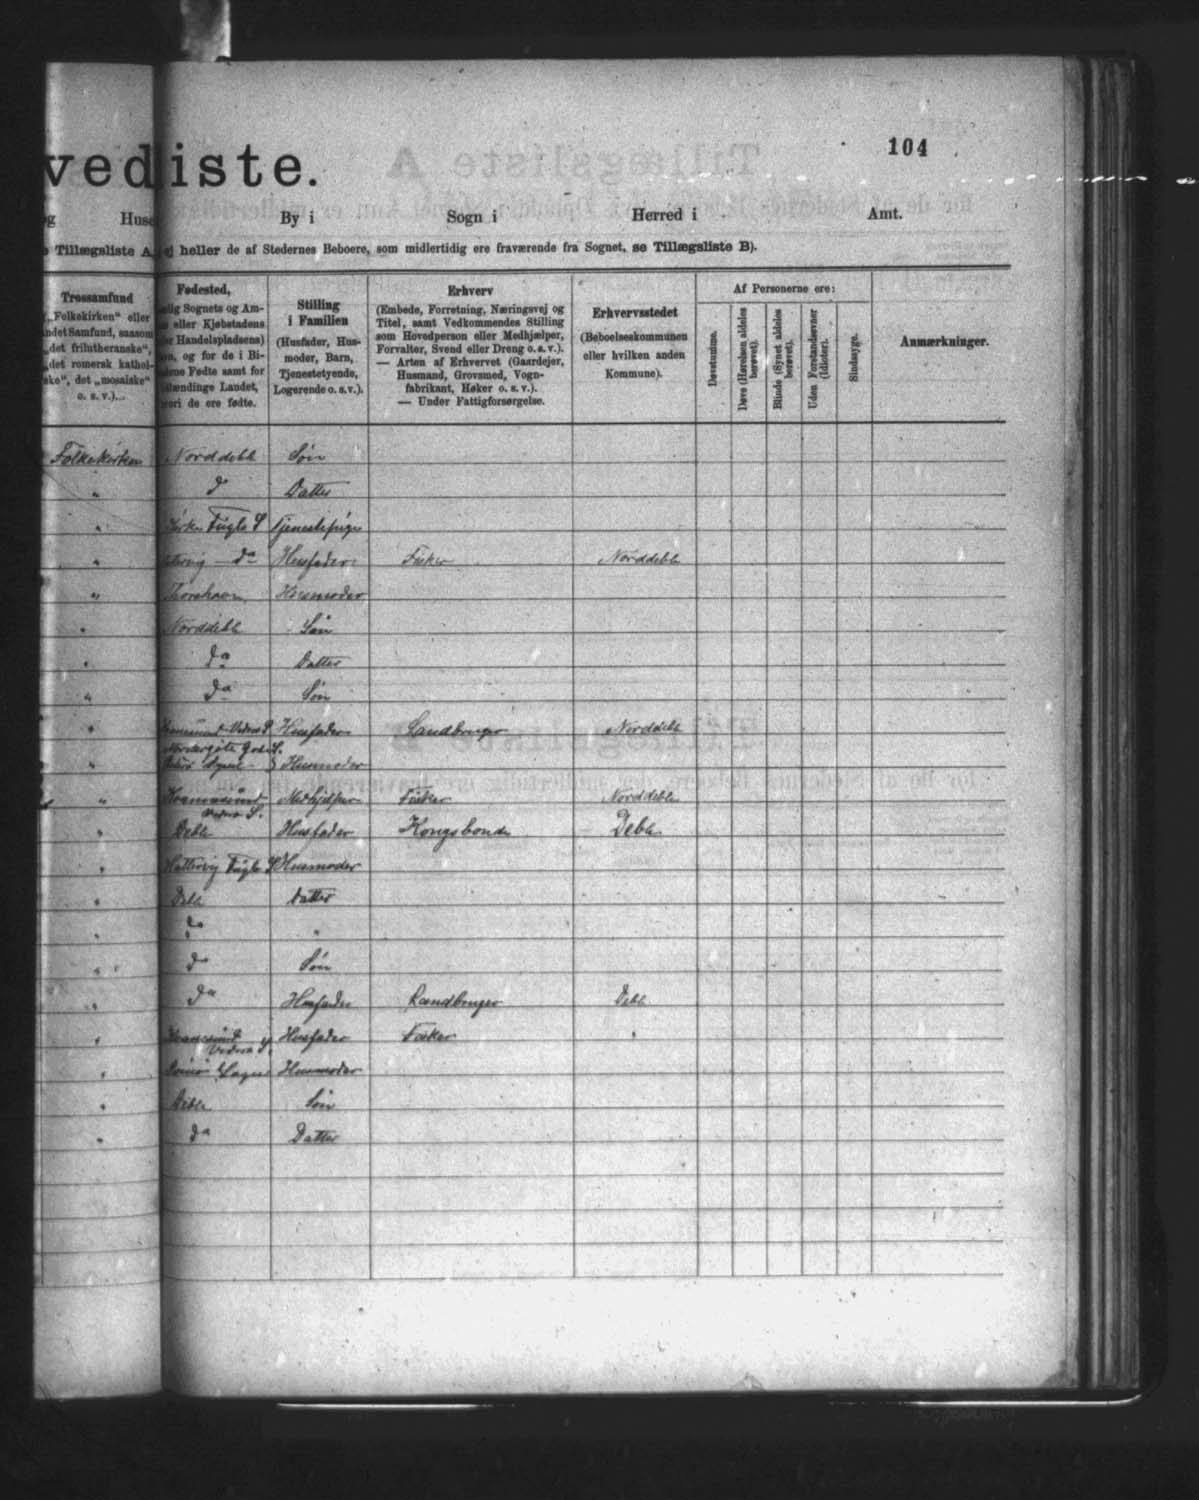 104
vediste.
og Huse By i Sogn i Herred i Amt.
Tillægsliste A, ej heller de af Stedernes Beboere, som midlertidig ere fraværende fra Sognet, se Tillægsliste B).
Trossamfund
(„Folkekirken“ eller
andet Samfund, saasom
„det frilutheranske“,
„det romersk kathol-
ske“, det „mosaiske“
o. s. v.)..
Fødested,
Sognets og Am-
eller Kjøbstadens
Handelspladsens)
og for de i Bi-
Fødte samt for
Udlændinge Landet,
hvori de ere fødte.
Stilling
i Familien
(Husfader, Hus-
moder, Barn,
Tjenestetyende,
Logerende o. s. v.).
Erhverv
(Embede, Forretning, Næringsvej og
Titel, samt Vedkommendes Stilling
som Hovedperson eller Medhjælper,
Forvalter, Svend eller Dreng o. s. v.).
— Arten af Erhvervet (Gaardejer,
Husmand, Grovsmed, Vogn-
fabrikant, Høker o. s. v.).
— Under Fattigforsørgelse.
Erhvervsstedet
(Beboelseskommunen
eller hvilken anden
Kommune).
Af Personerne ere:
Døvstumme.
Døve (Hørelsen aldeles
berøvet).
Blinde (Synet aldeles
berøvet).
Uden Forstandsevner
(Idioter).
Sindssyge.
Anmærkninger.
Folkekirken Norddeble Søn
" do Datter
" Kirke Fuglø S Tjenestepige
" do Husfader Fisker Norddeble
" Thorshavn Husmoder
" Norddeble Søn
" do Datter
" do Søn
" Husfader Landbruger Norddeble
" Husmoder
" Medhjælper Fisker Norddeble
" Deble Husfader Kongsbonde Deble
" Hattervig Fuglø S Husmoder
" Deble Datter
" do "
" do Søn
" do Husfader Landbruger Deble
" Husfader Fisker "
" Husmoder
" Deble Søn
" do Datter